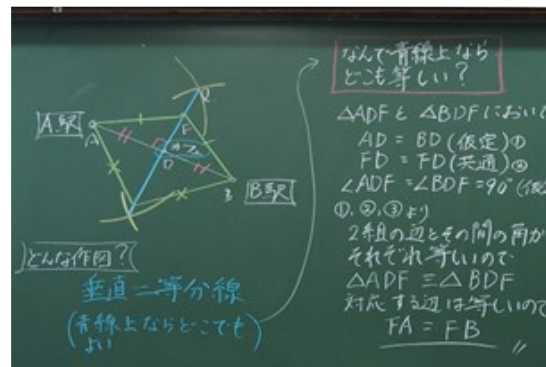 A駅
A
Q
F
D
B
B駅
どんな作図?
垂直二等分線
(青線上ならどこでも
よい)
なんで青線上なら
どこも等しい?
△ADFと△BDFにおいて
AD = BD (仮定)①
FD = FD (共通)②
∠ADF = ∠BDF = 90° (仮
①,②,③より
2組の辺とその間の角が
それぞれ等しいので
△ADF ≡ △BDF
対応する辺は等しいので
FA = FB